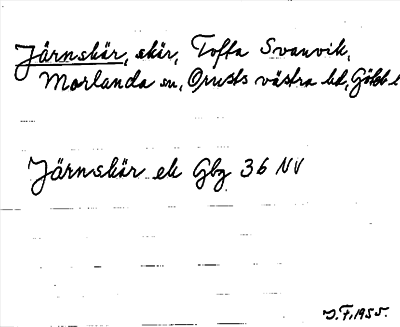 Järnskär, skär, Tofta Svanvik,
Morlanda sn, Orusts västra hd, Göteb l
Järnskär ek Gbg 36 NV
J.F. 1955.